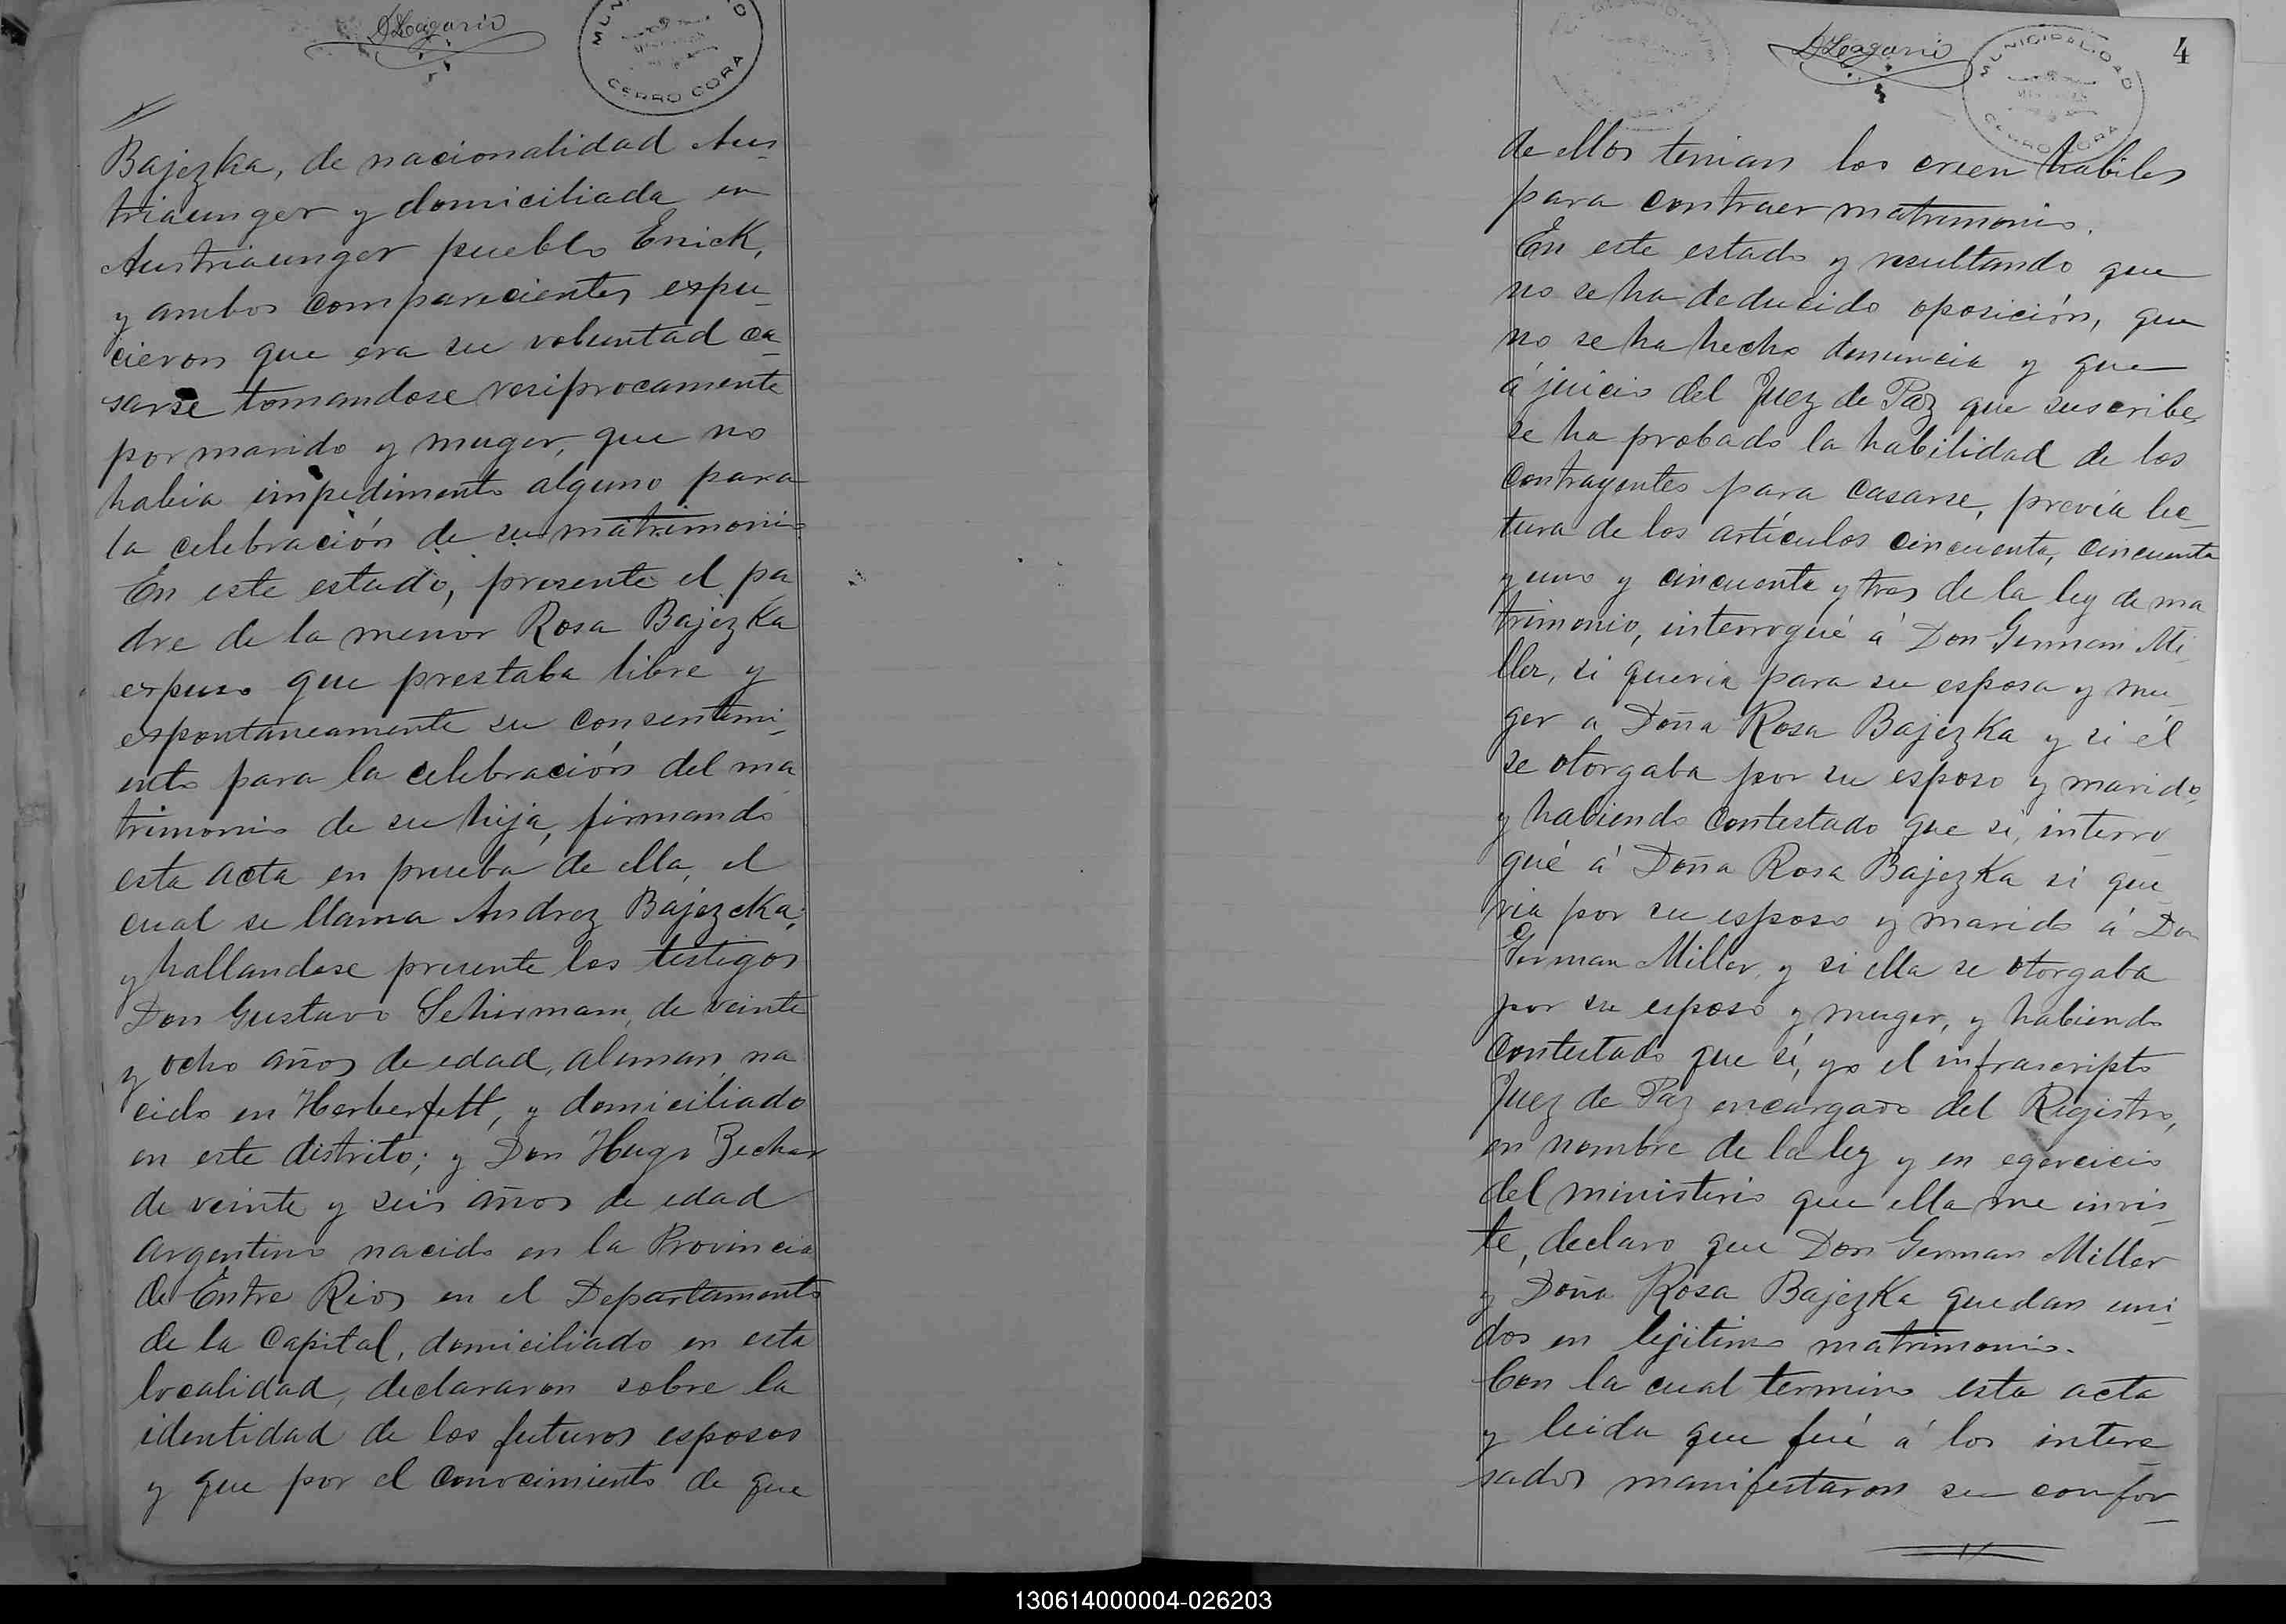 MUNICIPALIDAD
CERRO CORA
Bajezka, de nacionalidad Aus-
triaunger y domiciliada en
Austriaunger pueblo Enick,
y ambos comparecientes expu-
cieron que era su voluntad ca-
sarse tomandose resiprocamente
por marido y muger, que no
habia impedimento alguno para
la celebración de su matrimonio
En este estado, presente el pa
dre de la menor Rosa Bajezka
expuso que prestaba libre y
espontaneamente su consentimi-
ento para la celebración del ma
trimonio de su hija, firmando
esta acta en prueba de ella, el
cual se llama Andrez Bajezcka;
y hallandose presente los testigos
Don Gustavo Schirmam, de veinte
y ocho años de edad, aleman, na
cido en Herberfett, y domiciliado
en este distrito; y Don Hugo Bechar
de veinte y seis años de edad
argentino nacido en la Provincia
de Entre Rios en el Departamento
de la Capital, domiciliado en esta
localidad, declararon sobre la
identidad de los futuros esposos
y que por el conocimiento de que
4
MUNICIPALIDAD
CERRO CORA
de ellos tenian los creen habiles
para contraer matrimonio.
En este estado y resultando que
no se ha deducido oposición, que
no se ha hecho denuncia y que
á juicio del Juez de Paz que suscribe,
se ha probado la habilidad de los
contrayentes para casarse, previa lec-
tura de los artículos cincuenta, cincuenta
y uno y cincuenta y tres de la ley de ma
trimonio, interrogué á Don German Mi-
ller, si queria para su esposa y mu-
ger a Doña Rosa Bajezka y si él
se otorgaba por su esposo y marido,
y habiendo contestado que si, interro-
gué á Doña Rosa Bajezka si que-
ria por su esposo y marido á Don
German Miller, y si ella se otorgaba
por su esposo y muger, y habiendo
contestado que sí, yo el infrascripto
Juez de Paz encargado del Registro,
en nombre de la ley y en egercicio
del ministerio que ella me invis-
te, declaro que Don German Miller
y Doña Rosa Bajezka quedan uni-
dos en lejitimo matrimonio.
Con la cual termino esta acta
y leida que fué á los intere-
sados manifestaron su confor-
130614000004-026203